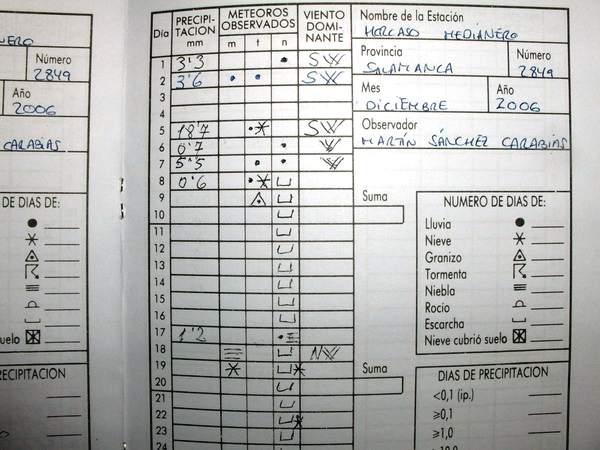 NERO
Número
2849
Año
2006
CARABIAS
DE DIAS DE:
suelo
RECIPITACION
Día
PRECIPI-
TACION
mm
METEOROS
OBSERVADOS
m t n
VIENTO
DOMI-
NANTE
1 3'3 SW
2 3'6 SW
3
4
5 18'7 SW
6 0'7 W
7 5'5 W
8 0'6
9
10
11
12
13
14
15
16
17 1'2
18 NW
19
20
21
22
23
24
Nombre de la Estación
HORCAJO MEDIANERO
Provincia
SALAMANCA
Número
2849
Mes
DICIEMBRE
Año
2006
Observador
MARTÍN SÁNCHEZ CARABIAS
Suma
Suma
NUMERO DE DIAS DE:
Lluvia
Nieve
Granizo
Tormenta
Niebla
Rocio
Escarcha
Nieve cubrió suelo
DIAS DE PRECIPITACION
<0,1 (ip.)
≥0,1
≥1,0